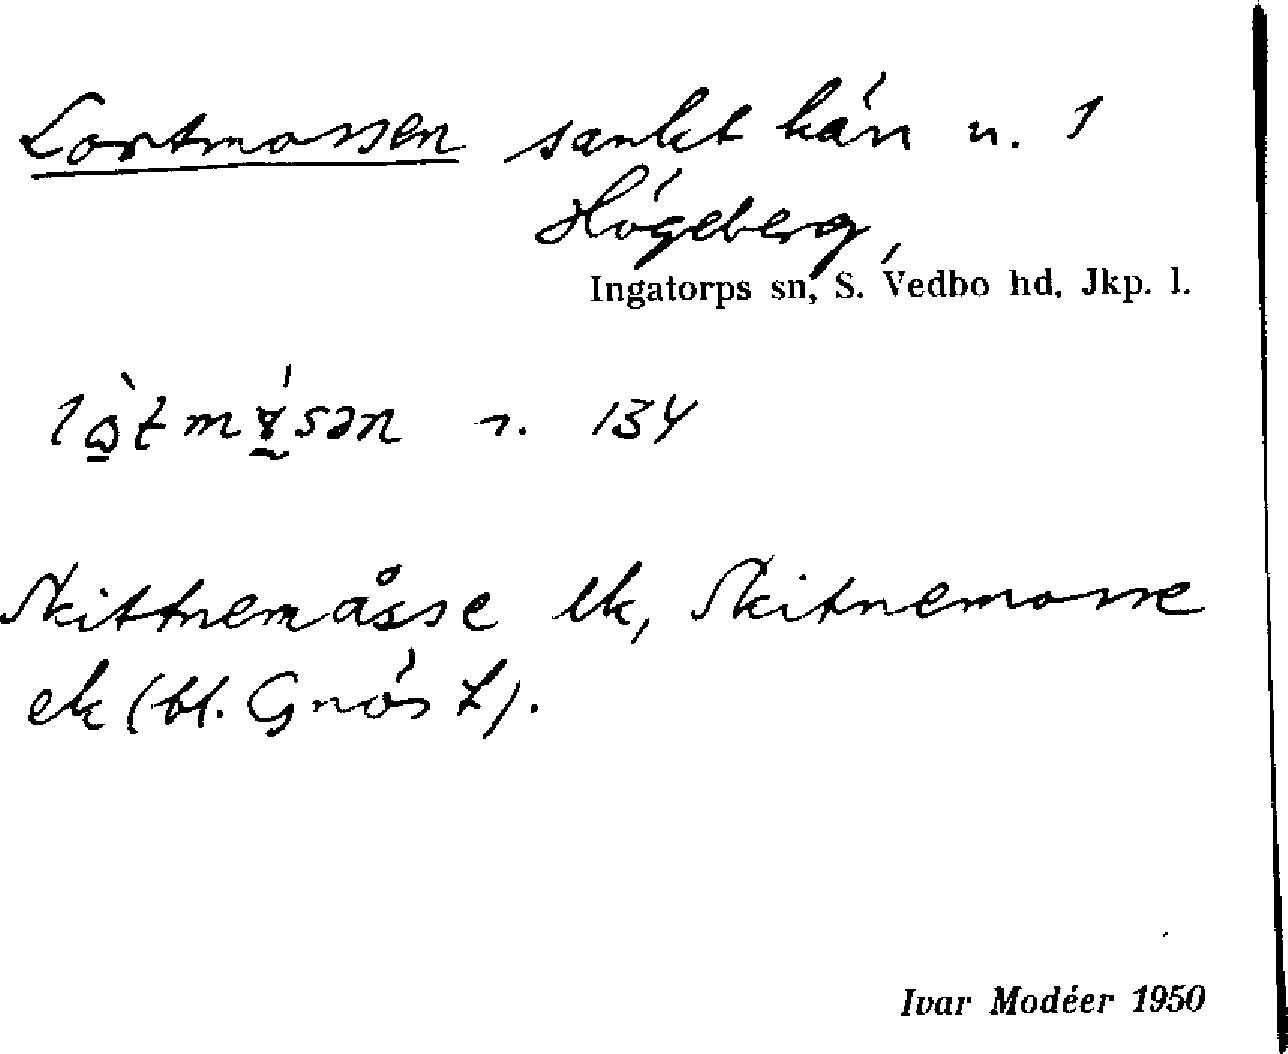 Lortmossen sankt kärr u. 1
Högeberg,
Ingatorps sn, S. Vedbo hd, Jkp. l.
r. 134
Skittnemåsse ek, Skitnemosse
ek (bl. Gnös t).
Ivar Modéer 1950